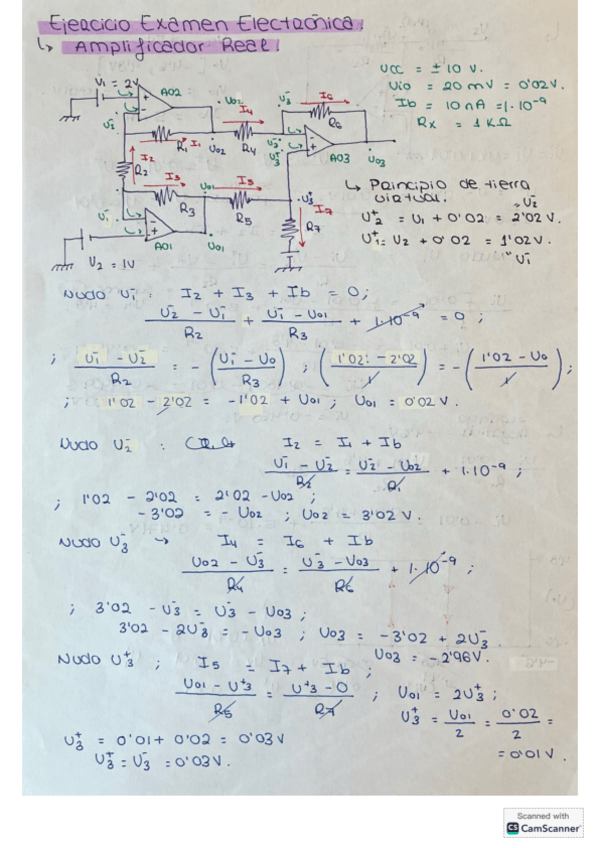 Ejercicio Examen Electrónica:
↳ Amplificador Real:
V1 = 2V
AO2
Uo2
I4
U3-
I6
R6
U2-
R1
I1
Uo2
R4
U3-
U3+
AO3
Uo3
I2
R2
I3
Uo1
I5
R3
R5
U3+
I7
R7
U1-
AO1
Uo1
U2 = 1V
Ucc = ± 10 V.
Uio = 20 mV = 0'02V.
Ib = 10 nA = 1·10⁻⁹
Rx = 1 KΩ
↳ Principio de tierra
virtual.
U2+ = U1 + 0'02 = 2'02V.
U2-
U1+ = U2 + 0'02 = 1'02V.
" U1-
Nudo U1- : I2 + I3 + Ib = 0;
(U2- - U1-)/R2 + (U1- - Uo1)/R3 + 1·10⁻⁹ = 0 ;
; (U1- - U2-)/R2 = -((U1- - Uo)/R3) ; ((1'02 - 2'02)/1) = -((1'02 - Uo)/1);
; 1'02 - 2'02 = -1'02 + Uo1 ; Uo1 = 0'02V.
Nudo U2- : I2 = I1 + Ib
(U1- - U2-)/R2 = (U2- - Uo2)/R1 + 1·10⁻⁹ ;
; 1'02 - 2'02 = 2'02 - Uo2 ;
-3'02 = -Uo2 ; Uo2 = 3'02V.
Nudo U3- → I4 = I6 + Ib
(Uo2 - U3-)/R4 = (U3- - Uo3)/R6 + 1·10⁻⁹ ;
; 3'02 - U3- = U3- - Uo3 ;
3'02 - 2U3- = -Uo3 ; Uo3 = -3'02 + 2U3-
Uo3 = -2'96V.
Nudo U3+ ; I5 = I7 + Ib ;
(Uo1 - U+3)/R5 = (U+3 - 0)/R7 ; Uo1 = 2U3+ ;
U3+ = Uo1/2 = 0'02/2 =
= 0'01V.
U3+ = 0'01 + 0'02 = 0'03V
U3+ = U3- = 0'03V.
Scanned with
CS CamScanner